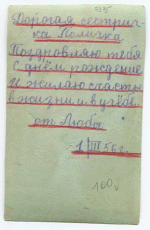 Дорогая сестрич-
ка Поличка
Поздровляю тебя
с днём рождение
И желаю счастья
в жизни и в учебе.
от Любы
1/III 56 г.
100